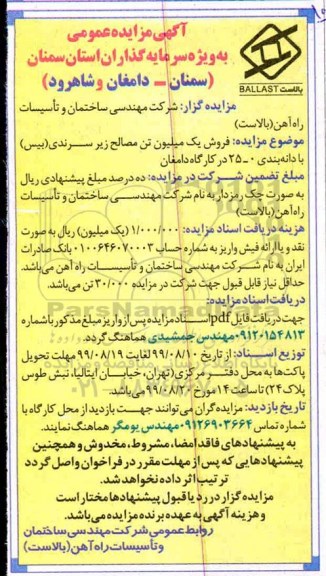 آگهی مزایده عمومی
به ویژه سرمایه گذاران استان سمنان
(سمنان - دامغان و شاهرود)
بالاست BALLAST
مزایده گزار: شرکت مهندسی ساختمان و تأسیسات
راه آهن (بالاست)
موضوع مزایده: فروش یک میلیون تن مصالح زیر سرندی (بیس)
با دانه‌بندی ۰ - ۲۵ در کارگاه دامغان
مبلغ تضمین شرکت در مزایده: ده درصد مبلغ پیشنهادی ریال
به صورت چک رمزدار به نام شرکت مهندسی ساختمان و تأسیسات
راه آهن (بالاست)
هزینه دریافت اسناد مزایده: ۱/۰۰۰/۰۰۰ (یک میلیون) ریال به صورت
نقد و یا ارائه فیش واریز به شماره حساب ۰۱۰۰۶۴۶۰۷۰۰۰۳ بانک صادرات
ایران به نام شرکت مهندسی ساختمان و تأسیسات راه آهن می‌باشد.
حداقل نیاز قابل قبول جهت شرکت در مزایده ۳۰/۰۰۰ تن می‌باشد.
دریافت اسناد مزایده:
جهت دریافت فایل pdf اسناد مزایده پس از واریز مبلغ مذکور با شماره
۰۹۱۲۰۱۵۴۸۱۳ مهندس جمشیدی هماهنگ گردد.
توزیع اسناد: از تاریخ ۹۹/۰۸/۱۰ لغایت ۹۹/۰۸/۱۹ مهلت تحویل
پاکت‌ها به محل دفتر مرکزی (تهران، خیابان ایتالیا، نبش طوس
پلاک ۲۴) تا ساعت ۱۴ مورخ ۹۹/۰۸/۲۰ می‌باشد.
تاریخ بازدید: مزایده گران می توانند جهت بازدید از محل کارگاه با
شماره تماس ۰۹۱۲۶۹۰۳۶۶۴ مهندس پومگر هماهنگ نمایند.
به پیشنهادهای فاقد امضا، مشروط، مخدوش و همچنین
پیشنهادهایی که پس از مهلت مقرر در فراخوان واصل گردد
ترتیب اثر داده نخواهد شد.
مزایده گزار در رد یا قبول پیشنهادها مختار است
و هزینه آگهی به عهده برنده مزایده می‌باشد.
روابط عمومی شرکت مهندسی ساختمان
و تأسیسات راه آهن (بالاست)